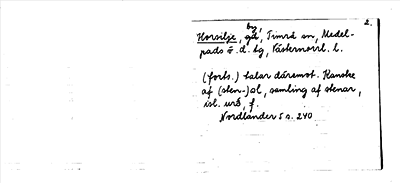 2.
by,
Horsilje, gd, Timrå sn, Medel-
pads v. d. bg, Västernorrl. l.
(forts.) talar däremot. Kanske
af (sten-)ol, samling af stenar,
isl. urð, f.
Nordlander S s. 240